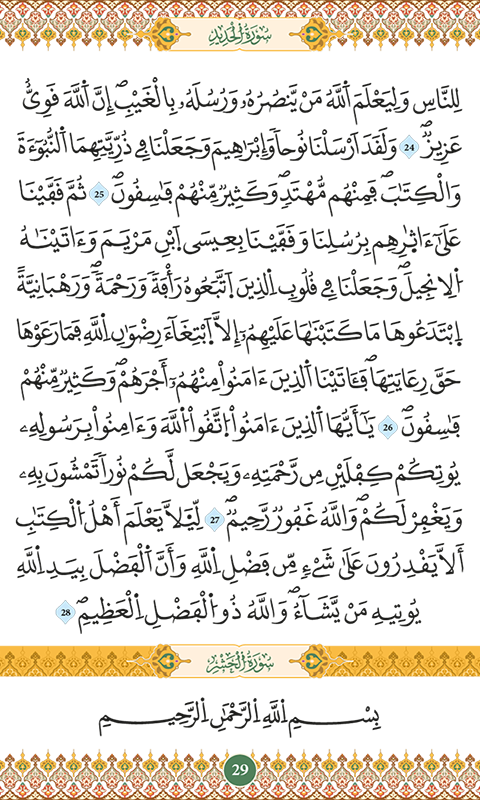 سُورَةُ الْحَدِيدِ
لِلنَّاسِ وَلِيَعْلَمَ اَ۬للَّهُ مَنْ يَّنصُرُهُۥ وَرُسُلَهُۥ بِالْغَيْبِۖ إِنَّ اَ۬للَّهَ قَوِيٌّ
عَزِيزٞۖ 24 وَلَقَدَ اَرْسَلْنَا نُوحاٗ وَإِبْرَٰهِيمَ وَجَعَلْنَا فِے ذُرِّيَّتِهِمَا اَ۬لنُّبُوَٓءَةَ
وَالْكِتَٰبَۖ فَمِنْهُم مُّهْتَدٖۖ وَكَثِيرٞ مِّنْهُمْ فَٰسِقُونَۖ 25 ثُمَّ قَفَّيْنَا
عَلَىٰٓ ءَاثٰ۪رِهِم بِرُسُلِنَا وَقَفَّيْنَا بِعِيسَى اَ۪بْنِ مَرْيَمَ وَءَاتَيْنَٰهُ
اُ۬لِانجِيلَۖ وَجَعَلْنَا فِے قُلُوبِ اِ۬لذِينَ اَ۪تَّبَعُوهُ رَأْفَةٗ وَرَحْمَةٗۖ وَرَهْبَانِيَّةً
اِ۪بْتَدَعُوهَا مَا كَتَبْنَٰهَا عَلَيْهِمُۥٓ إِلَّا اَ۪بْتِغَآءَ رِضْوَٰنِ اِ۬للَّهِ فَمَا رَعَوْهَا
حَقَّ رِعَايَتِهَاۖ فَـَٔاتَيْنَا اَ۬لذِينَ ءَامَنُواْ مِنْهُمُۥٓ أَجْرَهُمْۖ وَكَثِيرٞ مِّنْهُمْ
فَٰسِقُونَۖ 26 يَٰٓأَيُّهَا اَ۬لذِينَ ءَامَنُواْ اُ۪تَّقُواْ اُ۬للَّهَ وَءَامِنُواْ بِرَسُولِهِۦ
يُوتِكُمْ كِفْلَيْنِ مِن رَّحْمَتِهِۦ وَيَجْعَل لَّكُمْ نُوراٗ تَمْشُونَ بِهِۦ
وَيَغْفِرْ لَكُمْۖ وَاللَّهُ غَفُورٞ رَّحِيمٞۖ 27 لِّيَ۬لَّا يَعْلَمَ أَهْلُ اُ۬لْكِتَٰبِ
أَلَّا يَقْدِرُونَ عَلَىٰ شَےْءٖ مِّن فَضْلِ اِ۬للَّهِ وَأَنَّ اَ۬لْفَضْلَ بِيَدِ اِ۬للَّهِ
يُوتِيهِ مَنْ يَّشَآءُۖ وَاللَّهُ ذُو اُ۬لْفَضْلِ اِ۬لْعَظِيمِۖ 28
سُورَةُ الْحَشْرِ
بِسْمِ اِ۬للَّهِ اِ۬لرَّحْمَٰنِ اِ۬لرَّحِيمِ
29